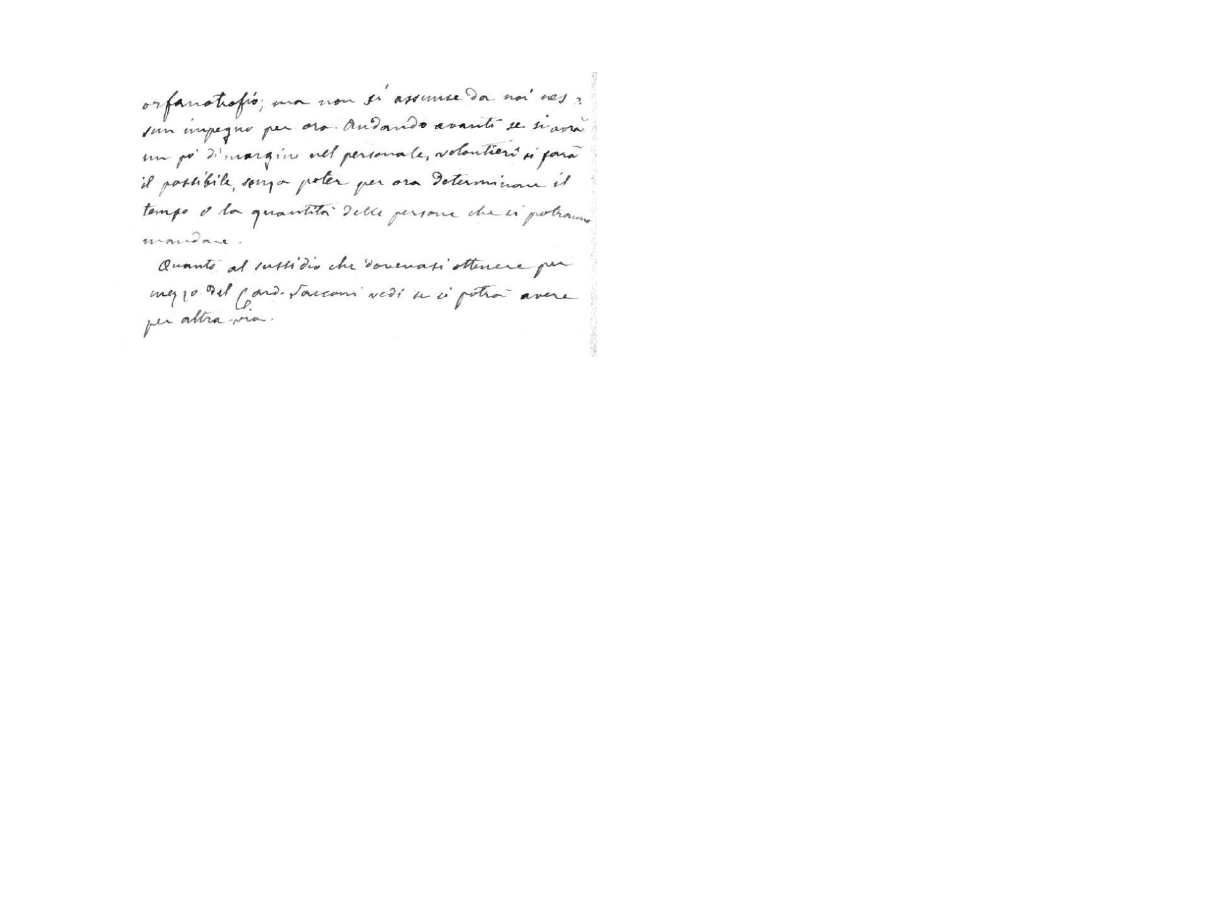 orfanotrofio; ma non si assunse da noi nes=
sun impegno per ora. Andando avanti se si avrà
un pò di margine nel personale, volontieri si farà
il possibile, senza poter per ora determinare il
tempo o la quantità delle persone che si potranno
mandare.
Quanto al sussidio che dovevasi ottenere per
mezzo del Card. Sacconi vedi se si potrà avere
per altra via.